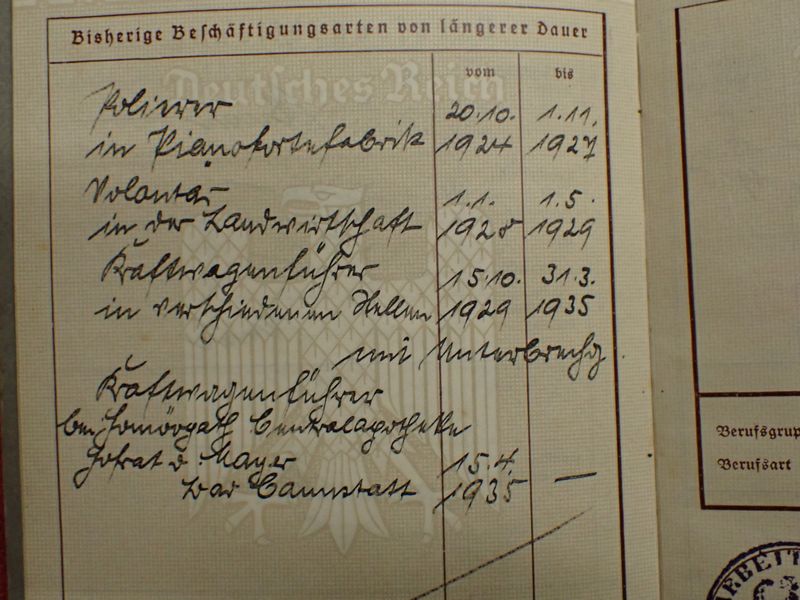 Bisherige Beschäftigungsarten von längerer Dauer
vom bis
Deutsches Reich
Polierer 20.10. 1.11.
in Pianofortefabrik 1924 1927
Volontär 1.1. 1.5.
in der Landwirtschaft 1928 1929
Kraftwagenführer 15.10. 31.3.
in verschiedenen Stellen 1929 1935
mit Unterbrechg
Kraftwagenführer
bei Homöopath Centralapotheke
Hofrat v. Mayer 15.4.
Bad Cannstatt 1935 —
Berufsgrup
Berufsart
ARBEIT